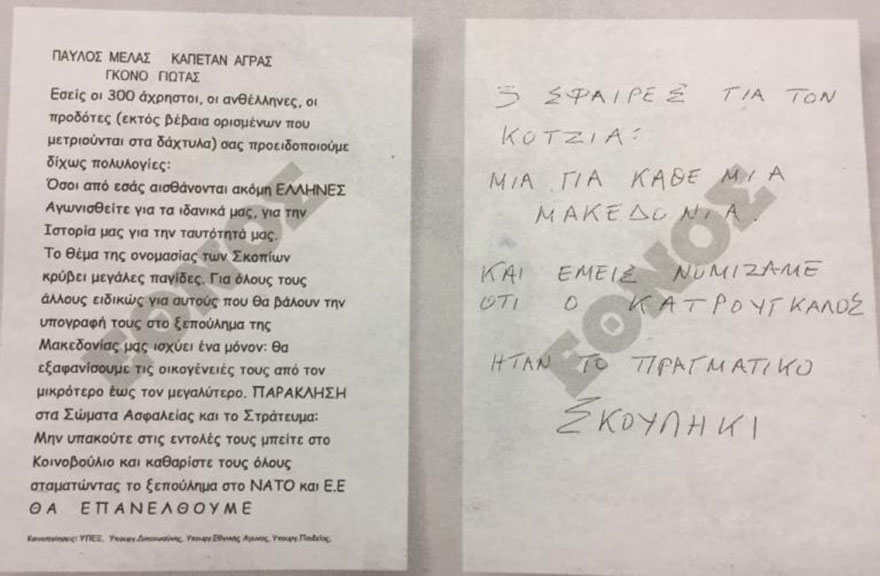 ΠΑΥΛΟΣ ΜΕΛΑΣ ΚΑΠΕΤΑΝ ΑΓΡΑΣ
ΓΚΟΝΟ ΓΙΩΤΑΣ
Εσείς οι 300 άχρηστοι, οι ανθέλληνες, οι
προδότες (εκτός βέβαια ορισμένων που
μετριούνται στα δάχτυλα) σας προειδοποιούμε
δίχως πολυλογίες:
Όσοι από εσάς αισθάνονται ακόμη ΕΛΛΗΝΕΣ
Αγωνισθείτε για τα ιδανικά μας, για την
Ιστορία μας για την ταυτότητά μας.
Το θέμα της ονομασίας των Σκοπίων
κρύβει μεγάλες παγίδες. Για όλους τους
άλλους ειδικώς για αυτούς που θα βάλουν την
υπογραφή τους στο ξεπούλημα της
Μακεδονίας μας ισχύει ένα μόνον: θα
εξαφανίσουμε τις οικογένειές τους από τον
μικρότερο έως τον μεγαλύτερο. ΠΑΡΑΚΛΗΣΗ
στα Σώματα Ασφαλείας και το Στράτευμα:
Μην υπακούτε στις εντολές τους μπείτε στο
Κοινοβούλιο και καθαρίστε τους όλους
σταματώντας το ξεπούλημα στο ΝΑΤΟ και Ε.Ε
ΘΑ ΕΠΑΝΕΛΘΟΥΜΕ
Κοινοποιήσεις: ΥΠΕΞ, Υπουργ.Δικαιοσύνης, Υπουργ.Εθνικής Αμυνας, Υπουργ.Παιδείας,
ΕΘΝΟΣ
5 ΣΦΑΙΡΕΣ ΓΙΑ ΤΟΝ
ΚΟΤΖΙΑ:
ΜΙΑ ΓΙΑ ΚΑΘΕ ΜΙΑ
ΜΑΚΕΔΟΝΙΑ.
ΚΑΙ ΕΜΕΙΣ ΝΟΜΙΖΑΜΕ
ΟΤΙ Ο ΚΑΤΡΟΥΓΚΑΛΟΣ
ΗΤΑΝ ΤΟ ΠΡΑΓΜΑΤΙΚΟ
ΣΚΟΥΛΗΚΙ
ΕΘΝΟΣ